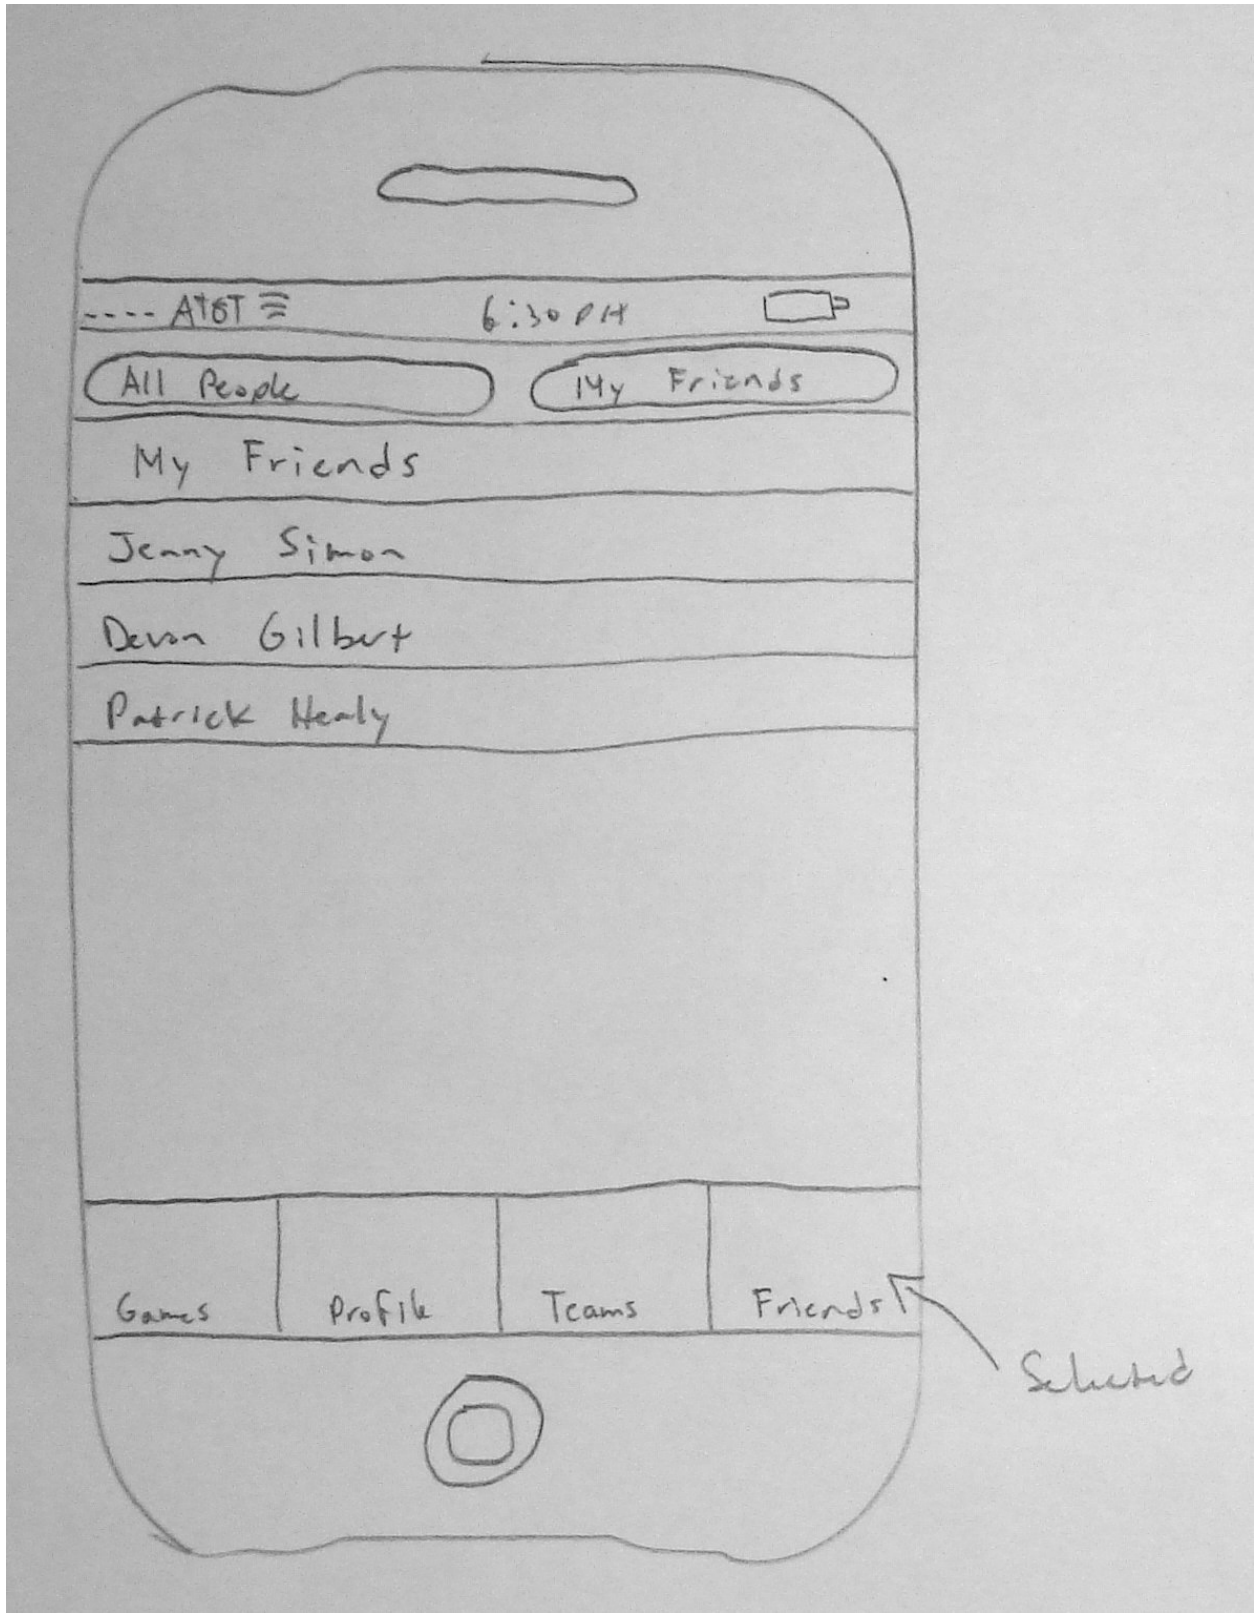 AT&T 6:30 PM
All People My Friends
My Friends
Jenny Simon
Devon Gilbert
Patrick Healy
Games Profile Teams Friends
Selected